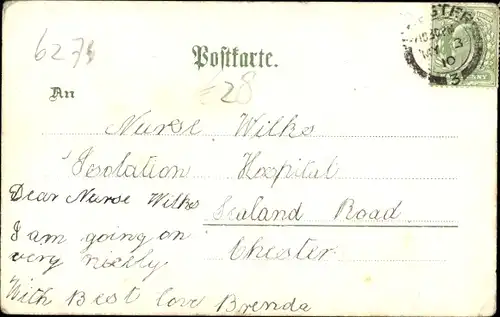 6274
Postkarte.
£28
An
Nurse Wilks
Isolation Hospital
Sealand Road
Chester
Dear Nurse Wilks
I am going on
very nickly
With Best love Brenda